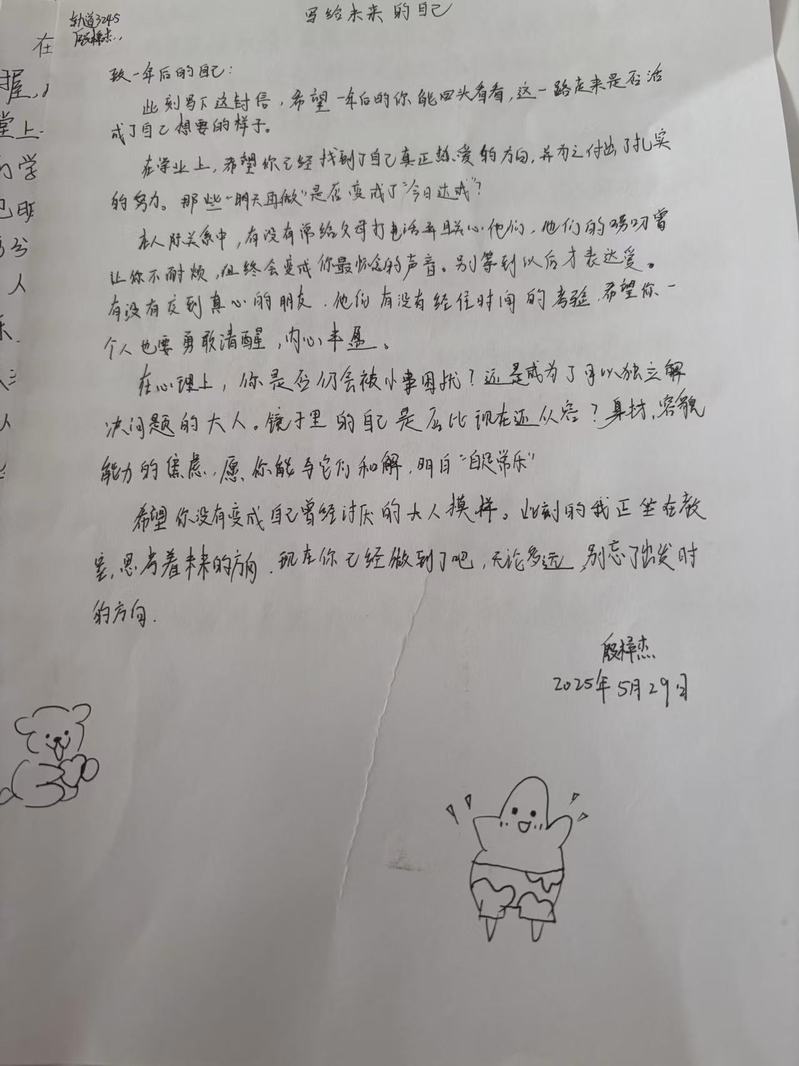 写给未来的自己
轨道3245
殷梓杰
在
握,
堂上
的学
人
致一年后的自己:
此刻写下这封信,希望一年后的你能回头看看,这一路走来是否活
成了自己想要的样子。
在学业上,希望你已经找到了自己真正热爱的方向,并为之付出了扎实
的努力。那些“明天再做”是否变成了“今日达成”?
在人际关系中,有没有常给父母打电话并且关心他们,他们的唠叨曾
让你不耐烦,但终会变成你最怀念的声音。别等到以后才表达爱。
有没有交到真心的朋友,他们有没有经住时间的考验,希望你一
个人也要勇敢清醒,内心丰盈。
在心理上,你是否仍会被小事困扰?还是成为了可以独立解
决问题的大人。镜子里的自己是否比现在还从容?身材,容貌
能力的焦虑,愿你能与它们和解,明白“自足常乐”
希望你没有变成自己曾经讨厌的大人模样。此刻的我正坐在教
室,思考着未来的方向,现在你已经做到了吧,无论多远,别忘了出发时
的方向.
殷梓杰
2025年5月29日